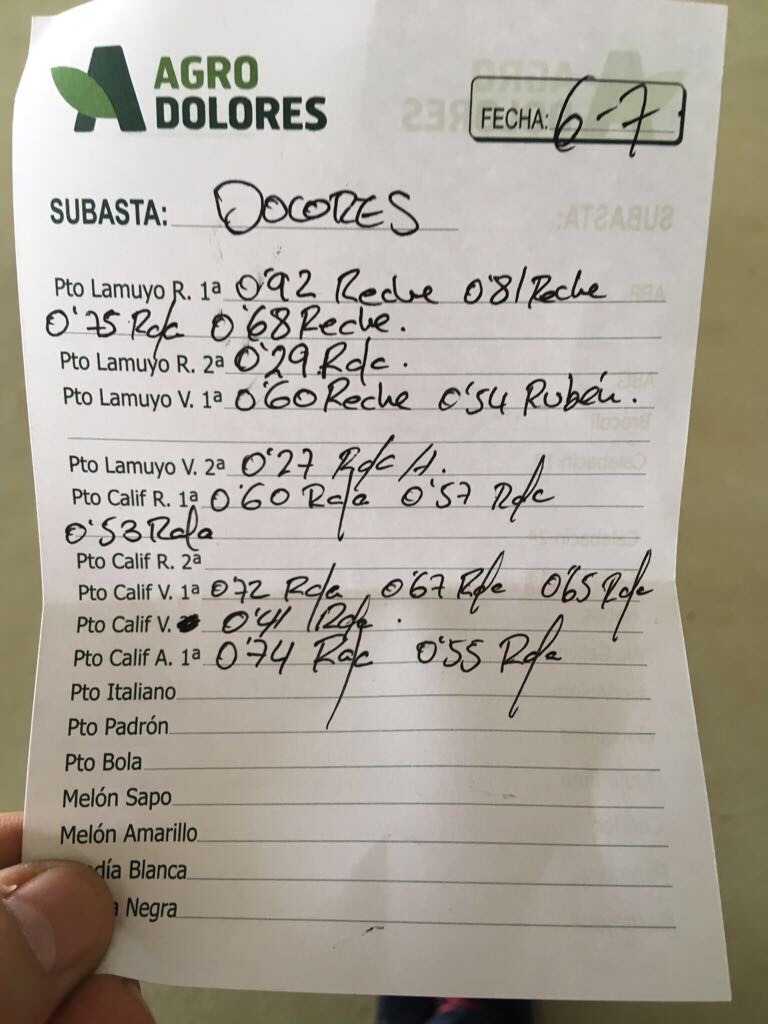 AGRO
DOLORES
FECHA: 6-7
SUBASTA: DOLORES
Pto Lamuyo R. 1ª 0'92 Reche 0'81 Reche
0'75 Rda 0'68 Reche.
Pto Lamuyo R. 2ª 0'29 Rda.
Pto Lamuyo V. 1ª 0'60 Reche 0'54 Rubén.
Pto Lamuyo V. 2ª 0'27 Rda A.
Pto Calif R. 1ª 0'60 Rda 0'57 Rda
0'53 Rda
Pto Calif R. 2ª
Pto Calif V. 1ª 0'72 Rda 0'67 Rda 0'65 Rda
Pto Calif V. 0'41 Rda.
Pto Calif A. 1ª 0'74 Rda 0'55 Rda
Pto Italiano
Pto Padrón
Pto Bola
Melón Sapo
Melón Amarillo
día Blanca
a Negra